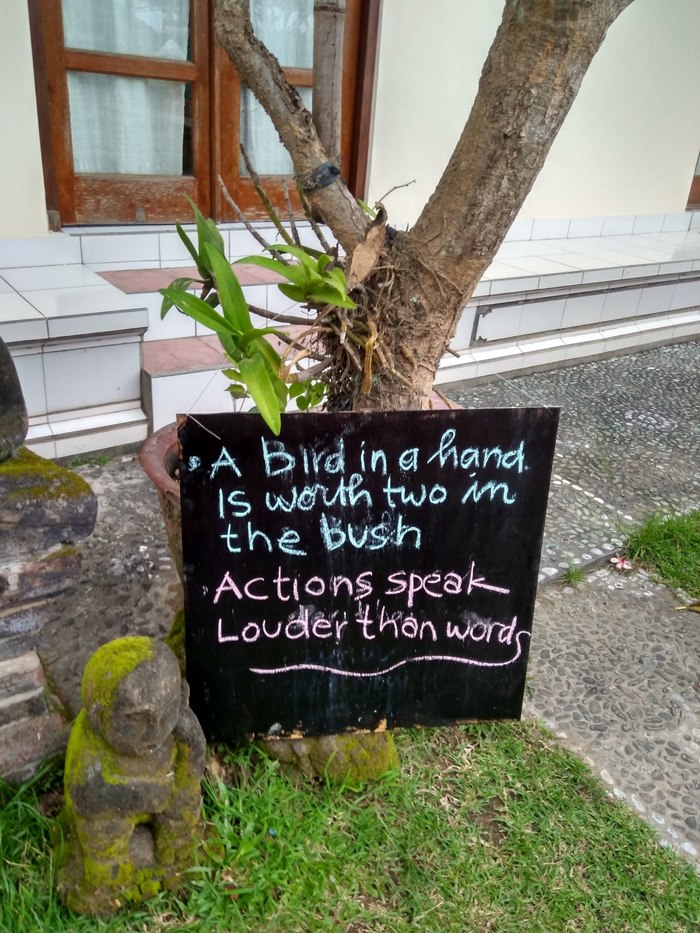 • A Bird in a hand
Is worth two in
the bush
Actions speak
Louder than words